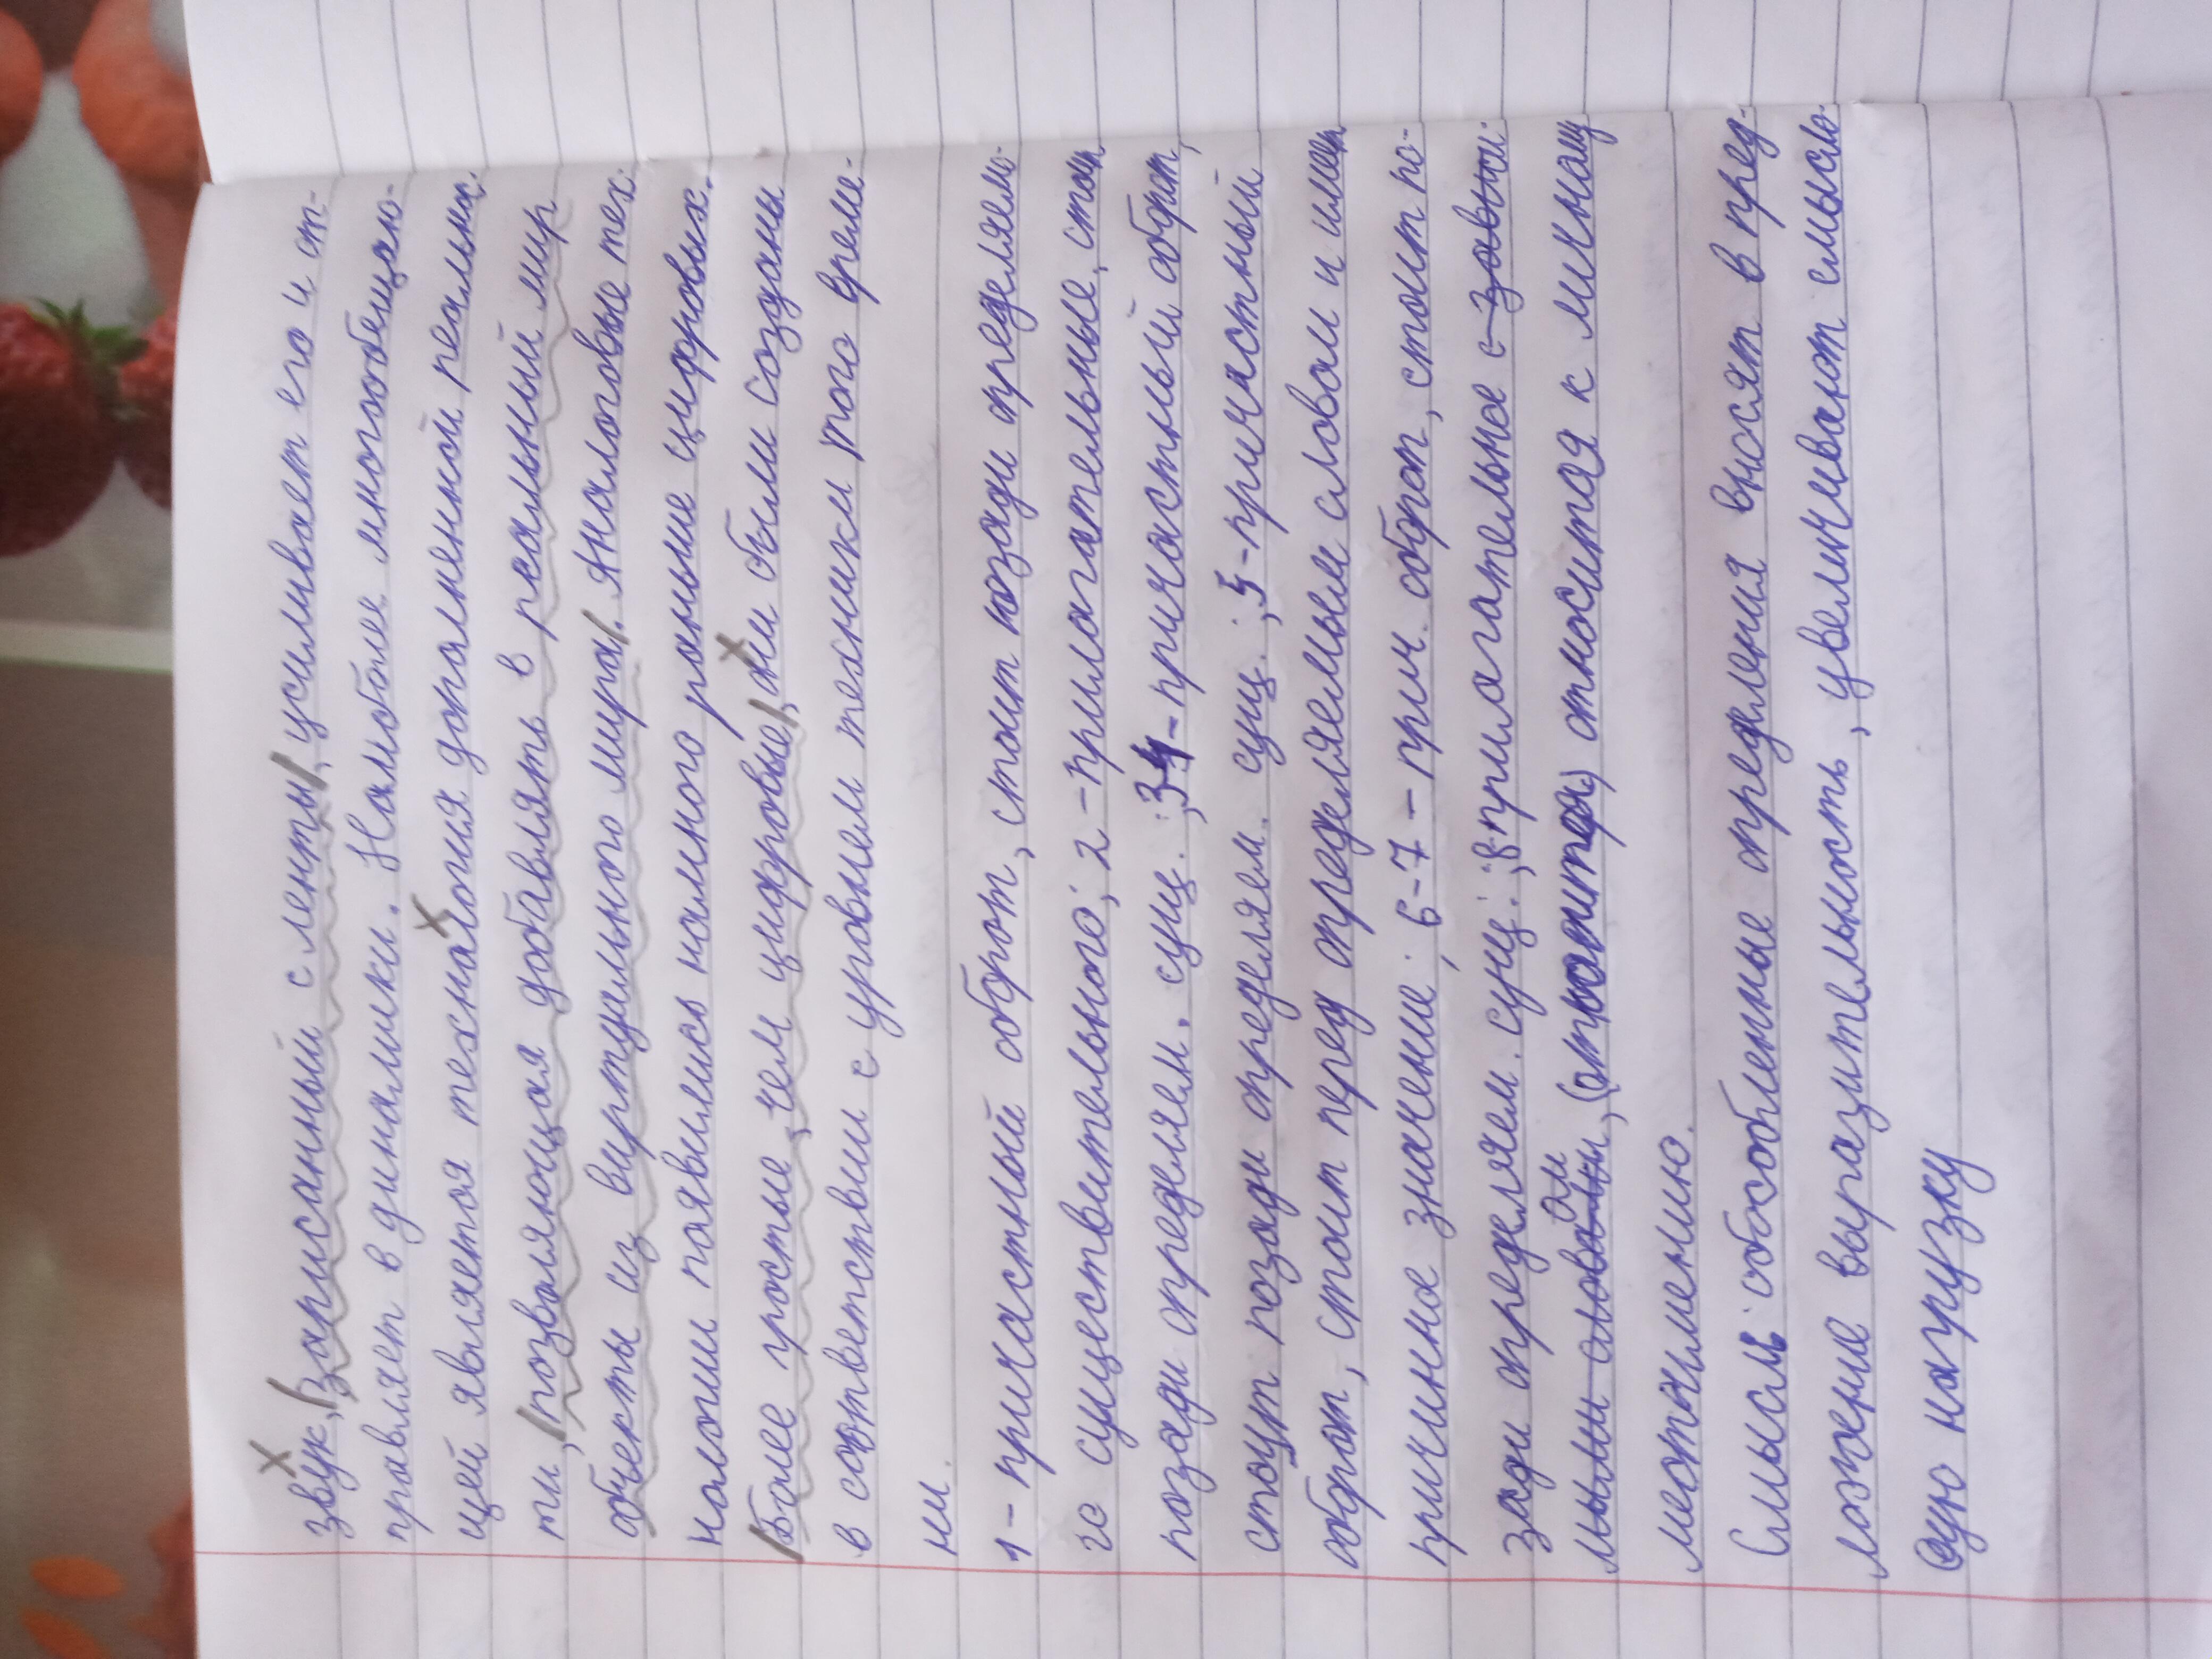 звук, записанный с ленты, усиливает его и от-
правляет в динамики. Наиболее многообещаю-
щей является технология дополненной реальнос-
ти, позволяющая добавлять в реальный мир
объекты из виртуального мира. Аналоговые тех-
нологии появились намного раньше цифровых.
Более простые, чем цифровые, они были созданы
в соответствии с уровнем техники того време-
ни.
1 - причастный оборот, стоит позади определяемо-
го существительного; 2 - прилагательные, стоят
позади определяем. сущ.; 3 4 - причастный оборот,
стоит позади определяем. сущ.; 5 - причастный
оборот, стоит перед определяемым словом и имеет
причинное значение; 6-7 - прич. оборот, стоит по-
зади определяем. сущ.; 8 - прилагательное с
относится к личному
местоимению.
Смысл: обособленные определения вносят в пред-
ложение выразительность, увеличивают смысло-
вую нагрузку